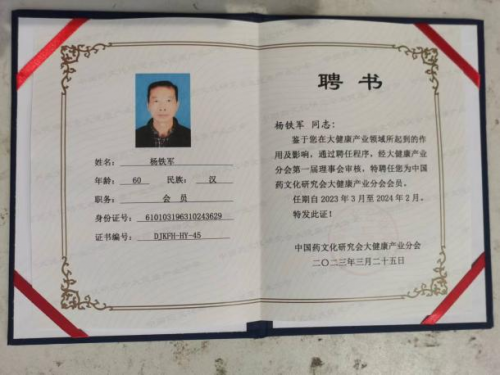 姓名: 杨铁军
年龄: 60 民族: 汉
职务: 会 员
身份证号: 610103196310243629
证书编号: DJKFH-HY-45
聘 书
杨铁军 同志:
鉴于您在大健康产业领域所起到的作
用及影响,通过聘任程序,经大健康产业
分会第一届理事会审核,特聘任您为中国
药文化研究会大健康产业分会会员。
任期自2023年3月至2024年2月,
特发此证!
中国药文化研究会大健康产业分会
二〇二三年三月二十五日